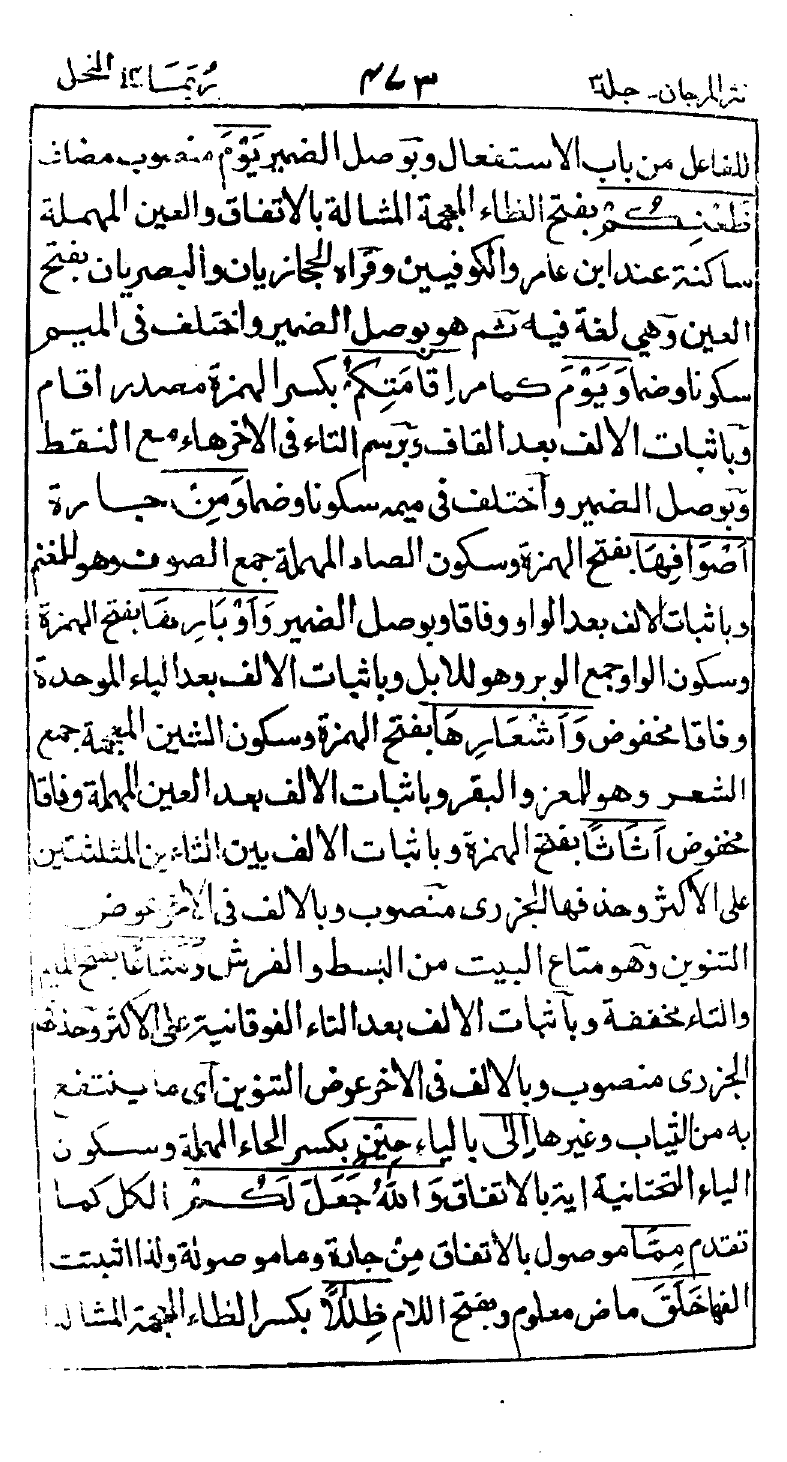 نثر المرجان - جلد ٣ ٤٧٣ رُبَمَا ١٤ النحل
للفاعل من باب الاستفعال وبوصل الضمير يَوْمَ منصوب مضاف
ظَعْنِكُمْ بفتح الظاء المعجمة المشالة بالاتفاق والعين المهملة
ساكنة عند ابن عامر والكوفيين وقراه الحجازيان والبصريان بفتح
العين وهي لغة فيه ثم هو بوصل الضمير واختلف فى الميم
سكونا وضما وَيَوْمَ كما مر اِقَامَتِكُمْ بكسر الهمزة مصدر اقام
وباثبات الالف بعد القاف وبرسم التاء فى الاخر هاء مع النقط
وبوصل الضمير واختلف فى ميمه سكونا وضما وَمِنْ جارة
اَصْوَافِهَا بفتح الهمزة وسكون الصاد المهملة جمع الصوف وهو للغنم
وباثبات الالف بعد الواو وفاقا وبوصل الضمير وَاَوْبَارِهَا بفتح الهمزة
وسكون الواو جمع الوبر وهو للابل وباثبات الالف بعد الباء الموحدة
وفاقا مخفوض وَاَشْعَارِهَا بفتح الهمزة وسكون الشين المعجمة جمع
الشعر وهو للمعز والبقر وباثبات الالف بعد العين المهملة وفاقا
مخفوض اَثَاثًا بفتح الهمزة وباثبات الالف بين الثاءين المثلثتين
على الاكثر وحذفها الجزرى منصوب وبالالف فى الاخر عوض
التنوين وهو متاع البيت من البسط والفرش وَمَتَاعًا بفتح الميم
والتاء مخففة وباثبات الالف بعد التاء الفوقانية على الاكثر وحذفها
الجزرى منصوب وبالالف فى الاخر عوض التنوين اى ما ينتفع
به من الثياب وغيرها اِلٰى بالياء حِيْنٍ بكسر الحاء المهملة وسكون
الياء التحتانية اية بالاتفاق وَاللّٰهُ جَعَلَ لَكُمْ الكل كما
تقدم مِمَّا موصول بالاتفاق مِنْ جارة وما موصولة ولذا اثبتت
الفها خَلَقَ ماض معلوم وبفتح اللام ظِلٰلًا بكسر الظاء المعجمة المشالة